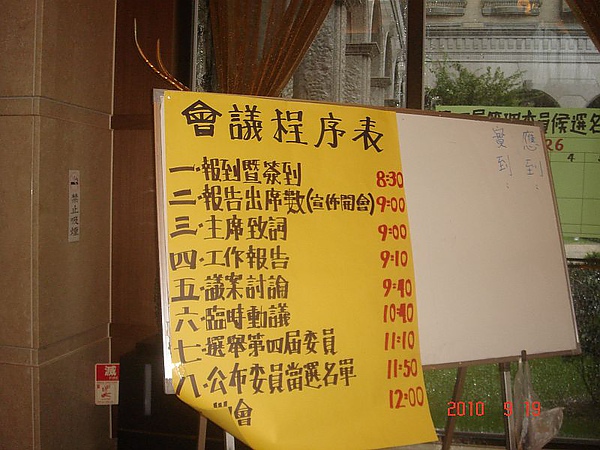 會議程序表
一·報到暨簽到 8:30
二·報告出席數(宣佈開會) 9:00
三·主席致詞 9:00
四·工作報告 9:10
五·議案討論 9:40
六·臨時動議 10:40
七·選舉第四屆委員 11:10
八·公布委員當選名單 11:50
會 12:00
應到:
實到:
委員候選名
26
4
禁止吸煙
滅
2010 9 19